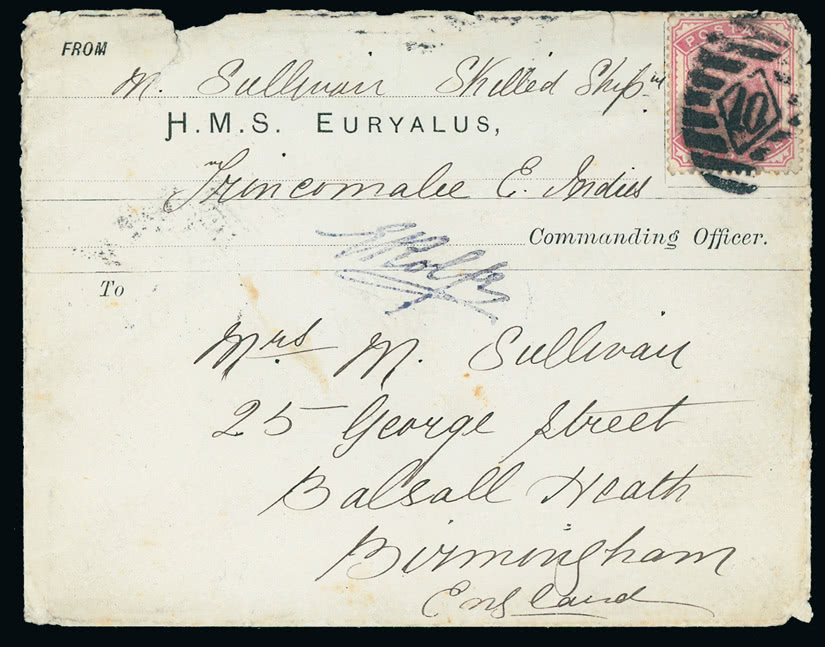 FROM
M. Sullivan Skilled Ship
H.M.S. EURYALUS,
Trincomalee E. Indies
Commanding Officer.
To
Mrs M. Sullivan
25 George Street
Balsall Heath
Birmingham
England
10